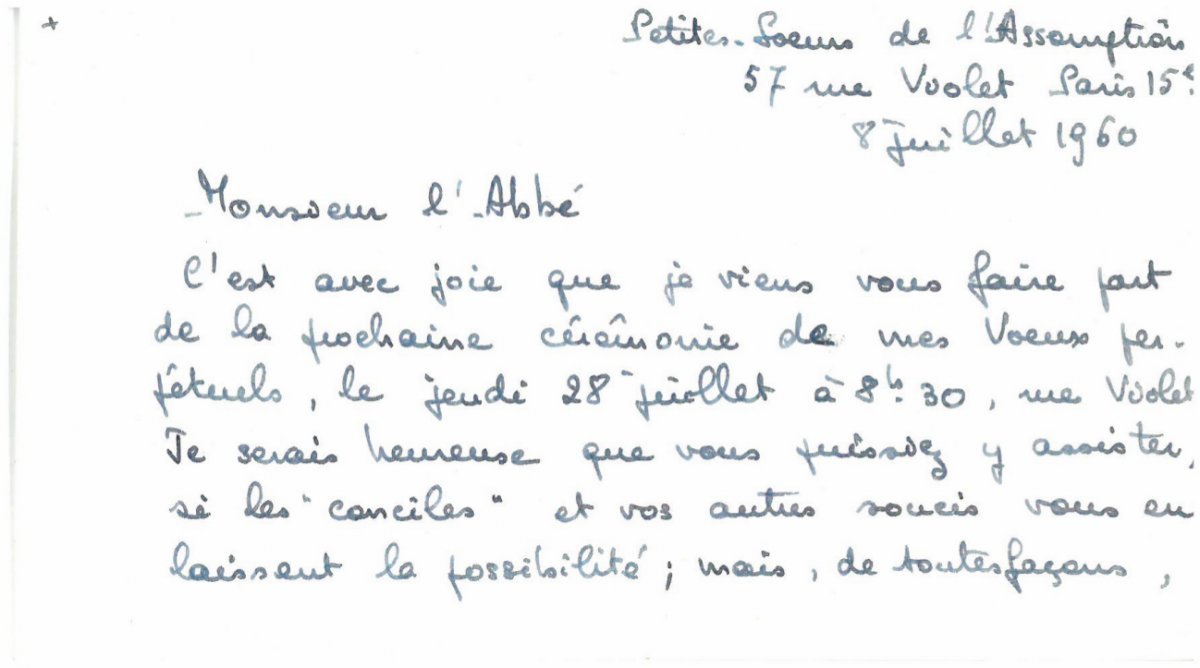 +
Petites-Soeurs de l'Assomption
57 rue Violet Paris 15e.
8 juillet 1960
Monsieur l'Abbé
C'est avec joie que je viens vous faire part
de la prochaine cérémonie de mes Voeux per-
pétuels, le jeudi 28 juillet à 8h.30, rue Violet
Je serais heureuse que vous puissiez y assister,
si les "conciles" et vos autres soucis vous en
laissent la possibilité ; mais, de toutes façons,